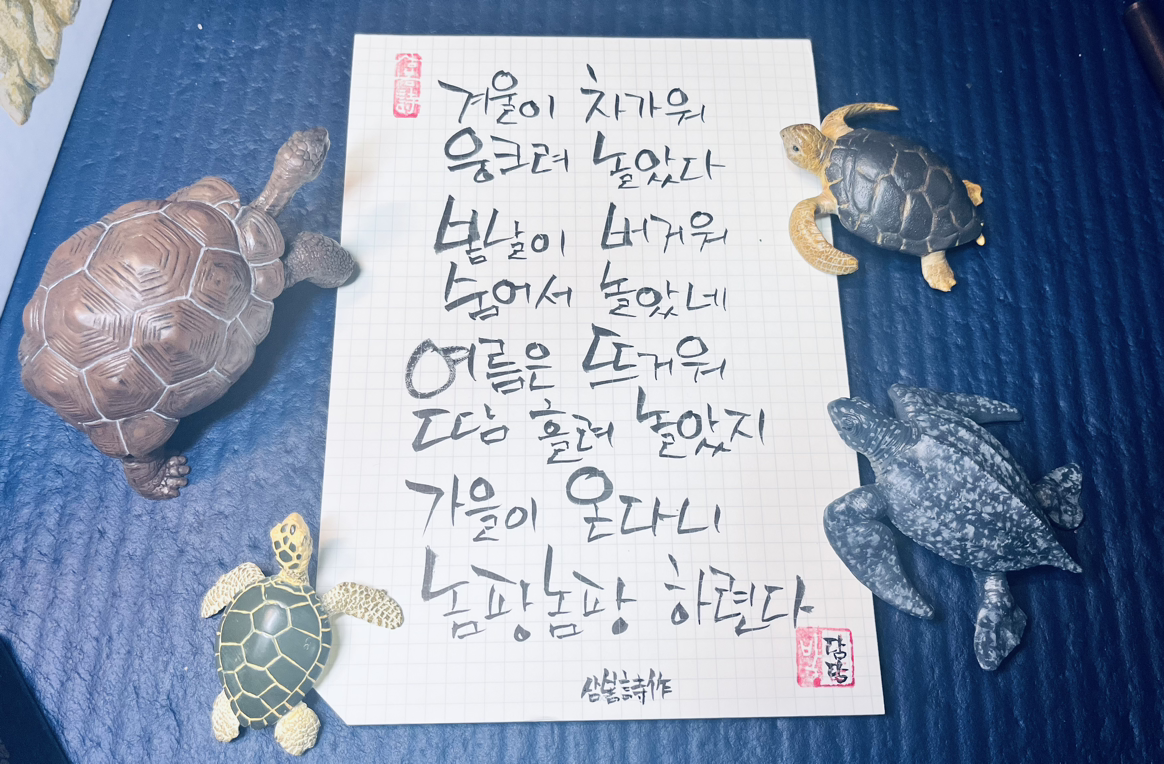 겨울이 차가워
웅크려 놀았다
봄날이 버거워
숨어서 놀았네
여름은 뜨거워
땀 흘려 놀았지
가을이 온다니
놈팡놈팡 하련다
삼봄詩作
담담